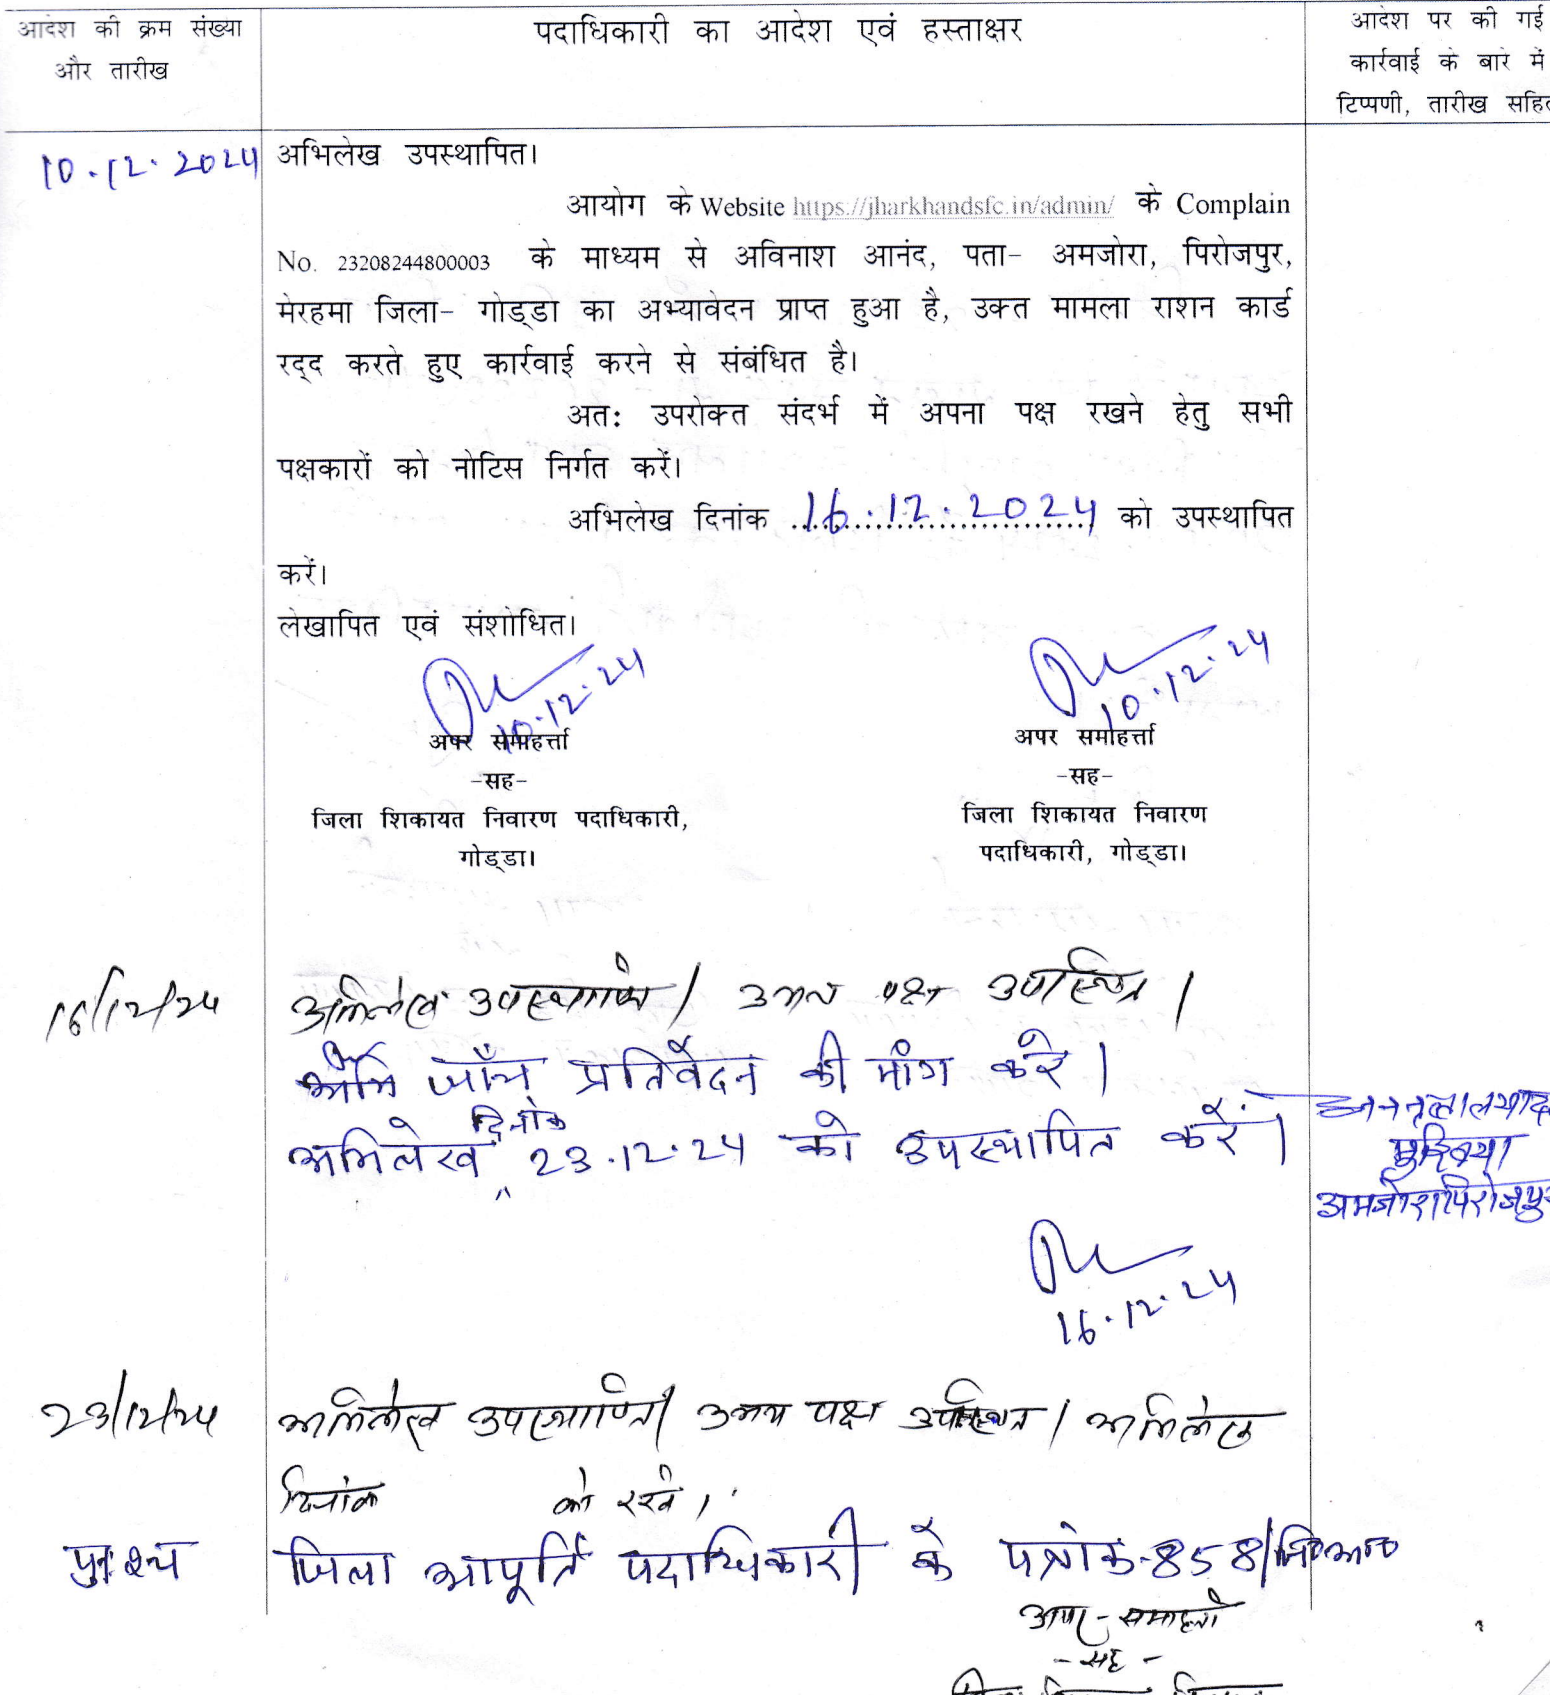 आदेश की क्रम संख्या
और तारीख
पदाधिकारी का आदेश एवं हस्ताक्षर
आदेश पर की गई
कार्रवाई के बारे में
टिप्पणी, तारीख सहित
10.12.2024
अभिलेख उपस्थापित।
आयोग के Website https://jharkhandsfc.in/admin/ के Complain
No. 23208244800003 के माध्यम से अविनाश आनंद, पता- अमजोरा, पिरोजपुर,
मेरहमा जिला- गोड्डा का अभ्यावेदन प्राप्त हुआ है, उक्त मामला राशन कार्ड
रद्द करते हुए कार्रवाई करने से संबंधित है।
अतः उपरोक्त संदर्भ में अपना पक्ष रखने हेतु सभी
पक्षकारों को नोटिस निर्गत करें।
अभिलेख दिनांक 16.12.2024 को उपस्थापित
करें।
लेखापित एवं संशोधित।
10.12.24
10.12.24
अपर समाहर्त्ता
-सह-
जिला शिकायत निवारण पदाधिकारी,
गोड्डा।
अपर समाहर्त्ता
-सह-
जिला शिकायत निवारण
पदाधिकारी, गोड्डा।
16/12/24
अभिलेख उपस्थापित। उभय पक्ष उपस्थित।
जाँच प्रतिवेदन की मांग करे।
अभिलेख दिनांक 23.12.24 को उपस्थापित करें।
मुखिया
अमजोरा पिरोजपुर
16.12.24
23/12/24
अभिलेख उपस्थापित। उभय पक्ष उपस्थित। अभिलेख
दिनांक को रखें।
पुनश्च
जिला आपूर्ति पदाधिकारी के पत्रांक-858/जि०आ०
अपर समाहर्ता
-सह-